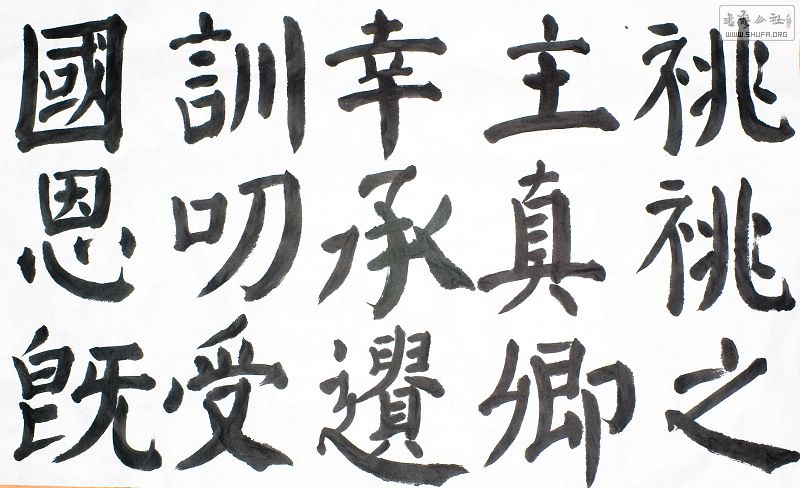 祧祧之
主真卿
幸承遺
訓叨受
國恩既
書法公社
WWW.SHUFA.ORG